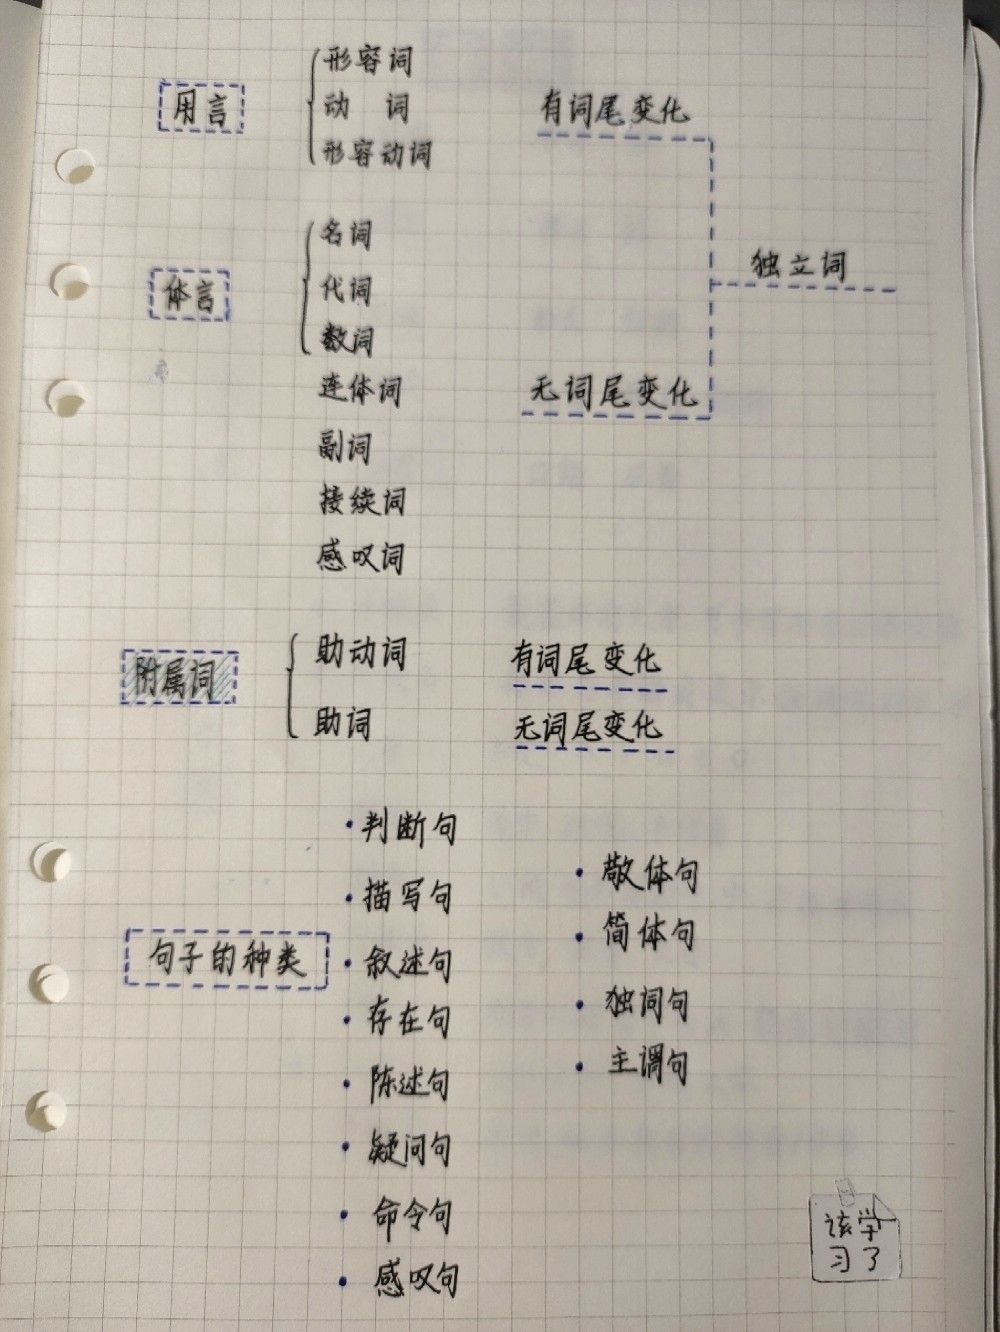 形容词
用言 动 词 有词尾变化
形容动词
名词
独立词
体言 代词
数词
连体词 无词尾变化
副词
接续词
感叹词
附属词 助动词 有词尾变化
助词 无词尾变化
·判断句
·敬体句
·描写句
·简体句
句子的种类 ·叙述句
·独词句
·存在句
·主谓句
·陈述句
·疑问句
·命令句
·感叹句
该学
习了